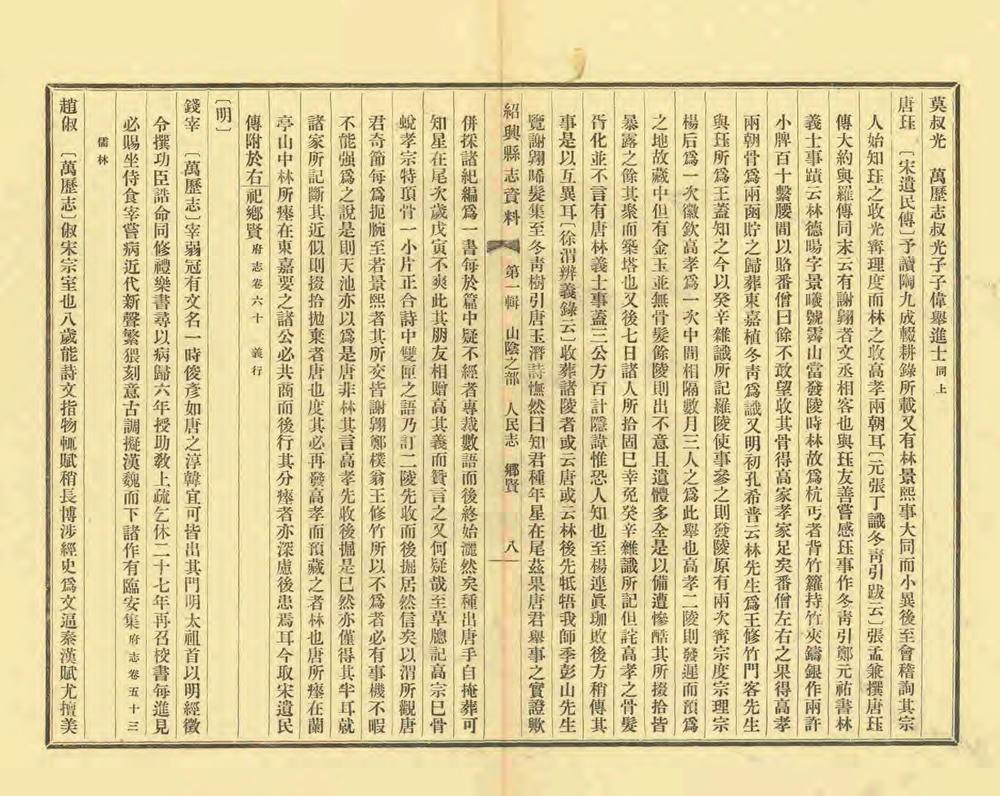 莫叔光　萬歷志叔光子子偉舉進士同上
唐珏　〔宋遺民傳〕予讀陶九成輟耕錄所載又有林景熙事大同而小異後至會稽詢其宗
人始知珏之收光甯理度而林之收高孝兩朝耳〔元張丁識冬靑引跋云〕張孟兼撰唐珏
傳大約與羅傳同末云有謝翶者文丞相客也與珏友善嘗感珏事作冬靑引鄭元祐書林
義士事蹟云林德暘字景曦號霽山當發陵時林故爲杭丐者背竹籮持竹夾鑄銀作兩許
小牌百十繫腰間以賂番僧曰餘不敢望收其骨得高家孝家足矣番僧左右之果得高孝
兩朝骨爲兩函貯之歸葬東嘉植冬靑爲識又明初孔希普云林先生爲王修竹門客先生
與珏所爲王蓋知之今以癸辛雜識所記羅陵使事參之則發陵原有兩次甯宗度宗理宗
楊后爲一次徽欽高孝爲一次中間相隔數月三人之爲此舉也高孝二陵則發遲而預爲
之地故藏中但有金玉並無骨髮餘陵則出不意且遺體多全是以備遭慘酷其所掇拾皆
暴露之餘其裒而築塔也又後七日諸人所拾固已幸免癸辛雜識所記但詫高孝之骨髮
胥化並不言有唐林義士事蓋二公方百計隱諱惟恐人知也至楊連眞珈敗後方稍傳其
事是以互異耳〔徐渭辨義錄云〕收葬諸陵者或云唐或云林後先牴牾我師季彭山先生
覽謝翶晞髮集至冬靑樹引唐玉潛詩憮然曰知君種年星在尾玆果唐君舉事之實證歟
紹興縣志資料　第一輯　山陰之部　人民志　鄉賢　八
併採諸紀編爲一書每於篇中疑不經者專裁數語而後終始灑然矣種出唐手自掩葬可
知星在尾次歲戊寅不爽此其朋友相贈高其義而贊言之又何疑哉至草牎記高宗已骨
蛻孝宗特頂骨一小片正合詩中雙匣之語乃訂二陵先收而後掘居然信矣以渭所觀唐
君奇節每爲扼腕至若景熙者其所交皆謝翶鄭樸翁王修竹所以不爲者必有事機不暇
不能强爲之說是則天池亦以爲是唐非林其言高孝先收後掘是已然亦僅得其半耳就
諸家所記斷其近似則掇拾拋棄者唐也度其必再發高孝而預藏之者林也唐所瘞在蘭
亭山中林所瘞在東嘉要之諸公必共商而後行其分瘞者亦深慮後患焉耳今取宋遺民
傳附於右祀鄉賢府志卷六十　義行
〔明〕
錢宰　〔萬歷志〕宰弱冠有文名一時俊彦如唐之淳韓宜可皆出其門明太祖首以明經徵
令撰功臣誥命同修禮樂書尋以病歸六年授助敎上疏乞休二十七年再召校書每進見
必賜坐侍食宰嘗病近代新聲繁猥刻意古調擬漢魏而下諸作有臨安集府志卷五十三
儒林
趙俶　〔萬歷志〕俶宋宗室也八歲能詩文指物輒賦稍長博涉經史爲文逼秦漢賦尤擅美